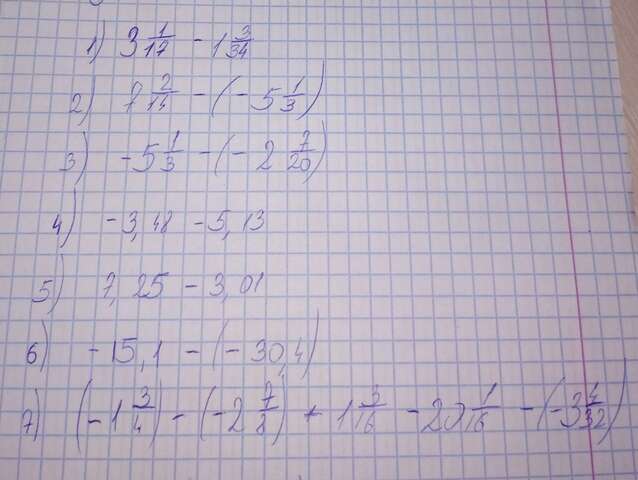 1) 3 1/17 - 1 3/34
2) 7 2/14 - (- 5 1/3)
3) - 5 1/3 - (- 2 7/20)
4) - 3,48 - 5,13
5) 7,25 - 3,01
6) - 15,1 - (- 30,4)
7) (- 1 3/4) - (- 2 7/8) + 1 3/16 - 20 1/16 - (- 3 4/32)